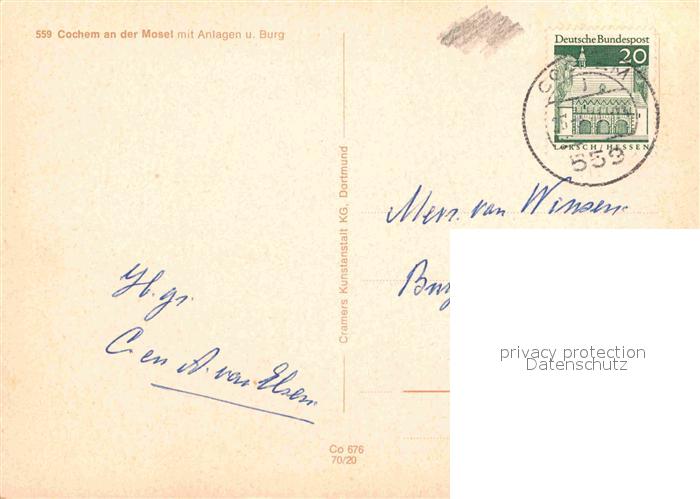 559 Cochem an der Mosel mit Anlagen u. Burg
Deutsche Bundespost
20
LORSCH/HESSEN
COCHEM
559
Cramers Kunstanstalt KG, Dortmund
Mevr. van Winsen
H. gr.
C. en A. van Elsen
privacy protection
Datenschutz
Co 676
70/20